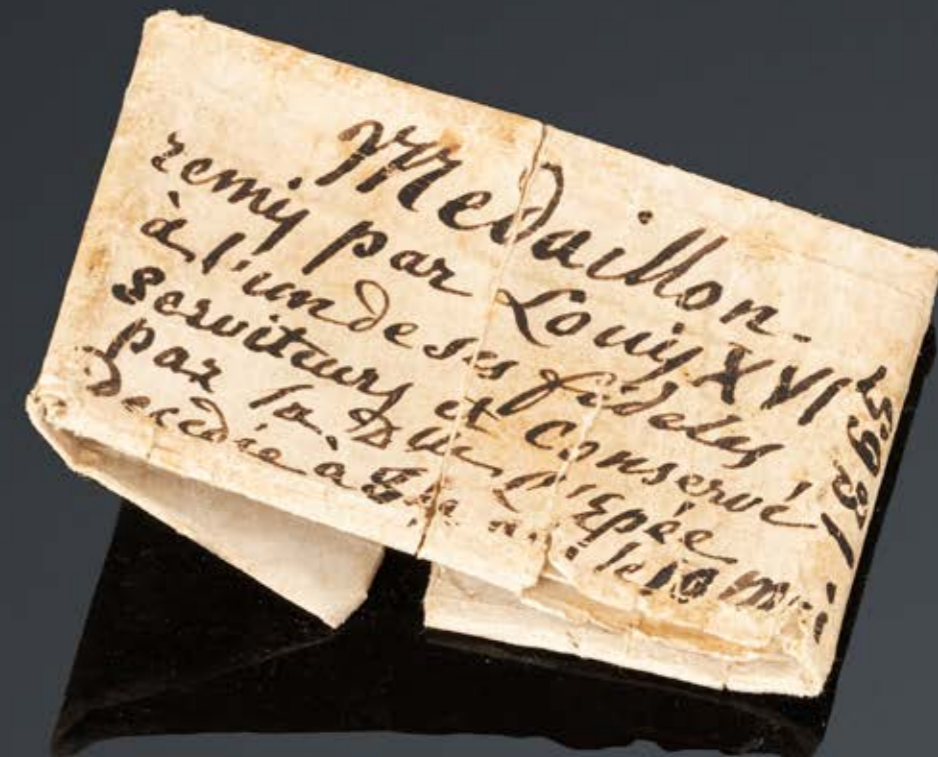 Medaillon -
remis par Louis XVI
à l'un de ses fideles
serviteurs et conservé
par la D L'Epée
décédée à le 10 mai
1865